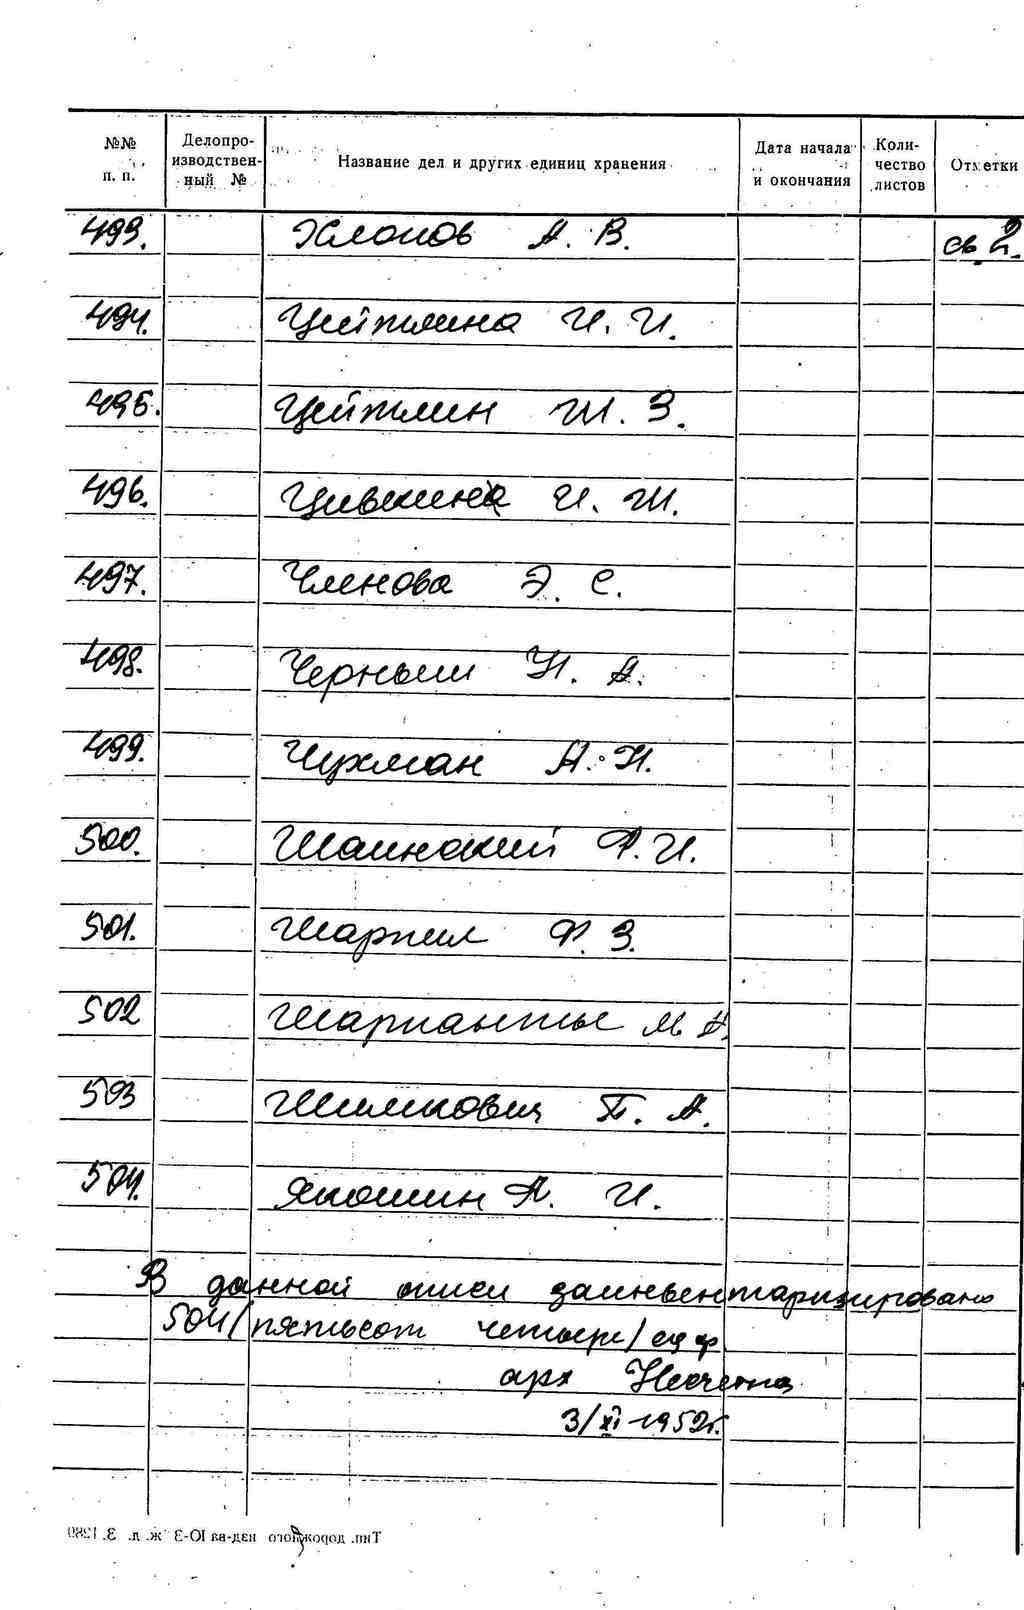 №№ п. п.
Делопроизводственный №
Название дел и других единиц хранения
Дата начала и окончания
Количество листов
Отметки
493. Хлопов А. В. св. 2.
494. Цейтлина И. И.
495. Цейтлин Ш. З.
496. Цивкина И. Ш.
497. Членова Э. С.
498. Черныш Н. А.
499. Чухман А. Н.
500. Шаинский Р. И.
501. Шарпил Ф. З.
502 Шарпантье М А.
503 Шимкович П. А.
504. Якошин А. И.
В данной описи заинвентаризировано
504/пятьсот четыре/ ед хр
арх
3/XI-1952г.
Тип. дорожного изд-ва Ю-З ж. д. З. 1280